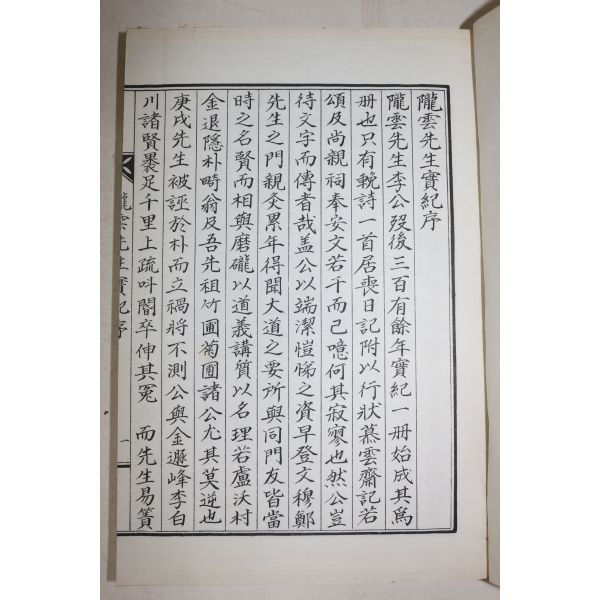 隴雲先生實紀序
隴雲先生李公歿後三百有餘年實紀一册始成其爲
册也只有輓詩一首居喪日記附以行狀慕雲齋記若
頌及尚親祠奉安文若干而已噫何其寂寥也然公豈
待文字而傳者哉盖公以端潔愷悌之資早登文穆鄭
先生之門親灸累年得聞大道之要所與同門友皆當
時之名賢而相與磨礲以道義講質以名理若盧沃村
金退隱朴畸翁及吾先祖竹圃菊圃諸公尤其莫逆也
庚戌先生被誣於朴而立禍將不測公與金遯峰李白
川諸賢褁足千里上疏呌閤卒伸其冤 而先生易簀
隴雲先生實紀序 一